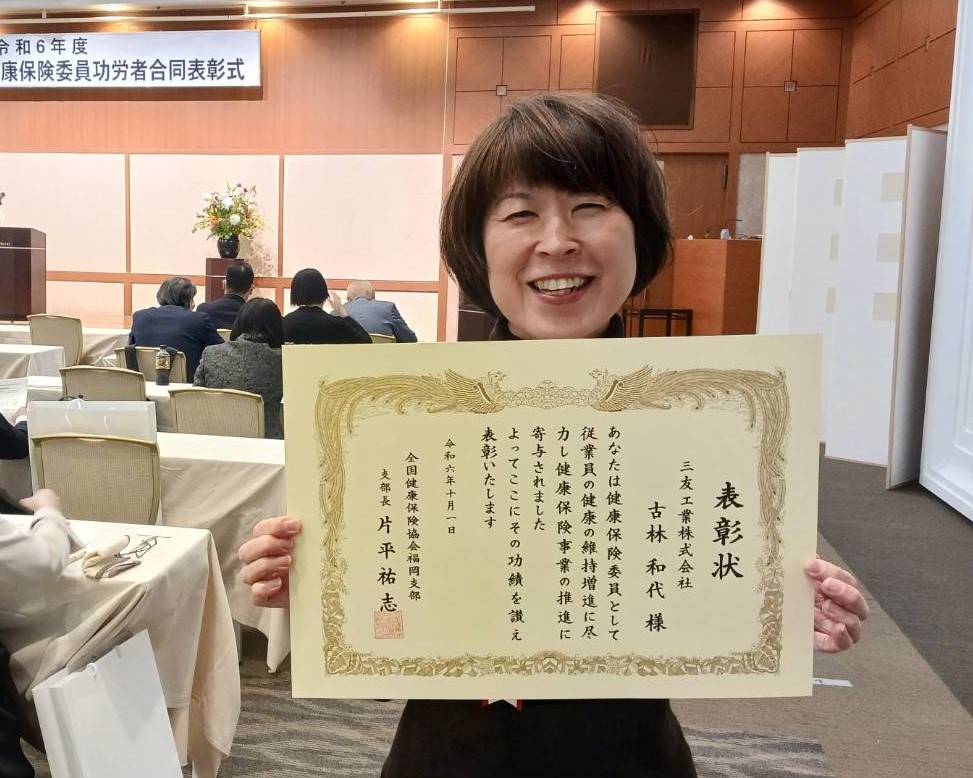 令和6年度
康保険委員功労者合同表彰式
表彰状
三友工業株式会社
古林 和代 様
あなたは健康保険委員として
従業員の健康の維持増進に尽
力し健康保険事業の推進に
寄与されました
よってここにその功績を讃え
表彰いたします
令和六年十月一日
全国健康保険協会福岡支部
支部長 片平祐志